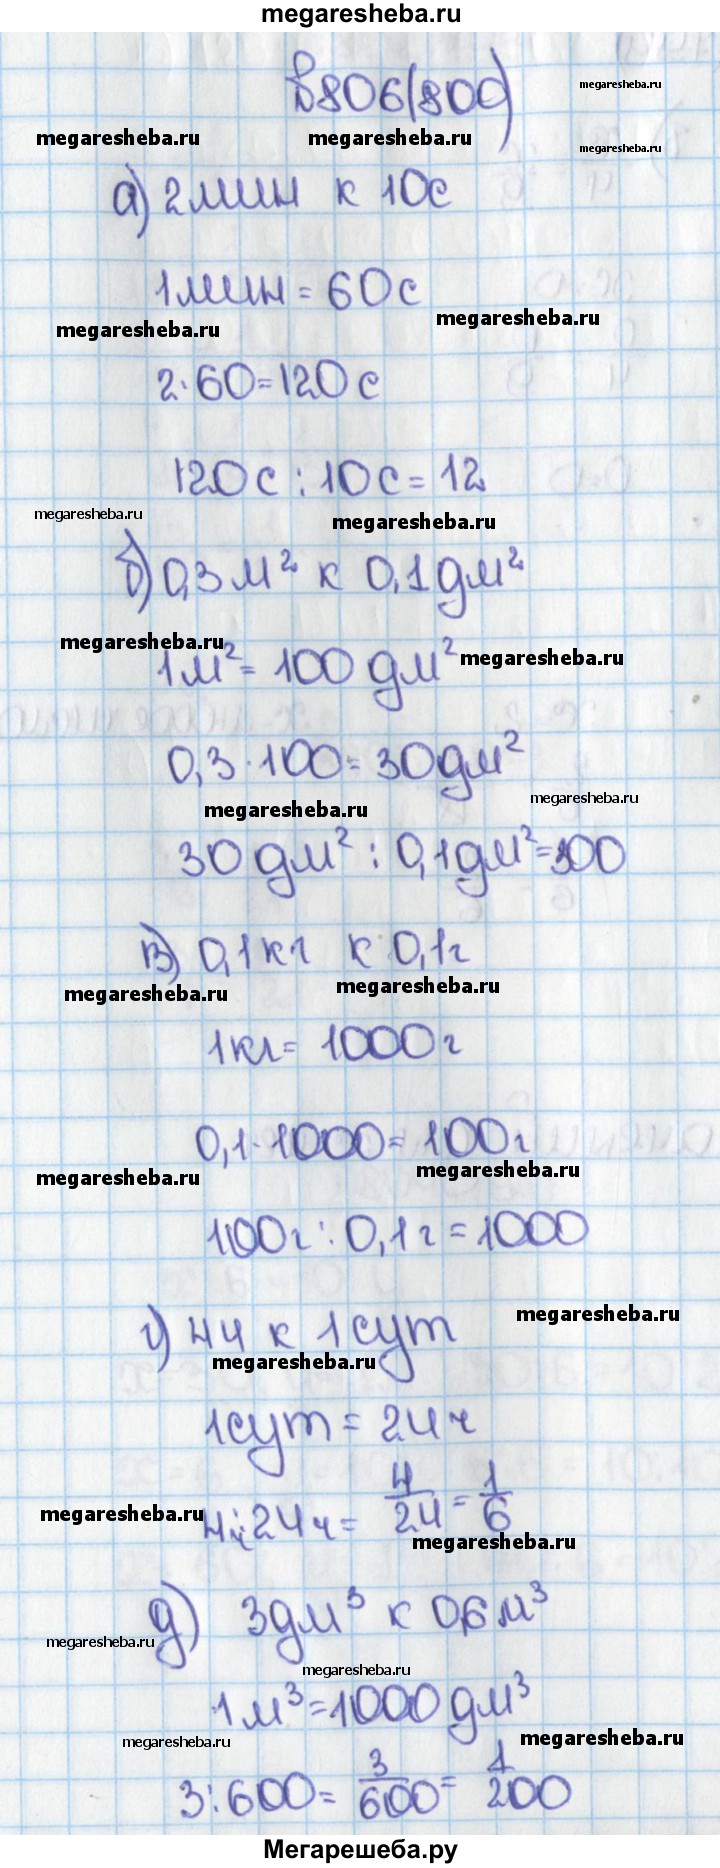 megaresheba.ru
№806(800)
megaresheba.ru
megaresheba.ru megaresheba.ru
megaresheba.ru
а) 2 мин к 10с
1 мин = 60с
megaresheba.ru megaresheba.ru
2·60=120с
120с : 10с = 12
megaresheba.ru megaresheba.ru
б) 0,3 м² к 0,1 дм²
megaresheba.ru
1м² = 100 дм² megaresheba.ru
0,3·100=30дм²
megaresheba.ru megaresheba.ru
30дм² : 0,1дм²=300
в) 0,1кг к 0,1г
megaresheba.ru megaresheba.ru
1кг = 1000г
0,1·1000=100г
megaresheba.ru megaresheba.ru
100г : 0,1г = 1000
megaresheba.ru
г) 4ч к 1сут
megaresheba.ru
1сут = 24ч
4ч:24ч = 4/24 = 1/6
megaresheba.ru megaresheba.ru
д) 3дм³ к 0,6м³
megaresheba.ru megaresheba.ru
1м³=1000дм³
megaresheba.ru megaresheba.ru
3:600= 3/600 = 1/200
Мегарешеба.ру